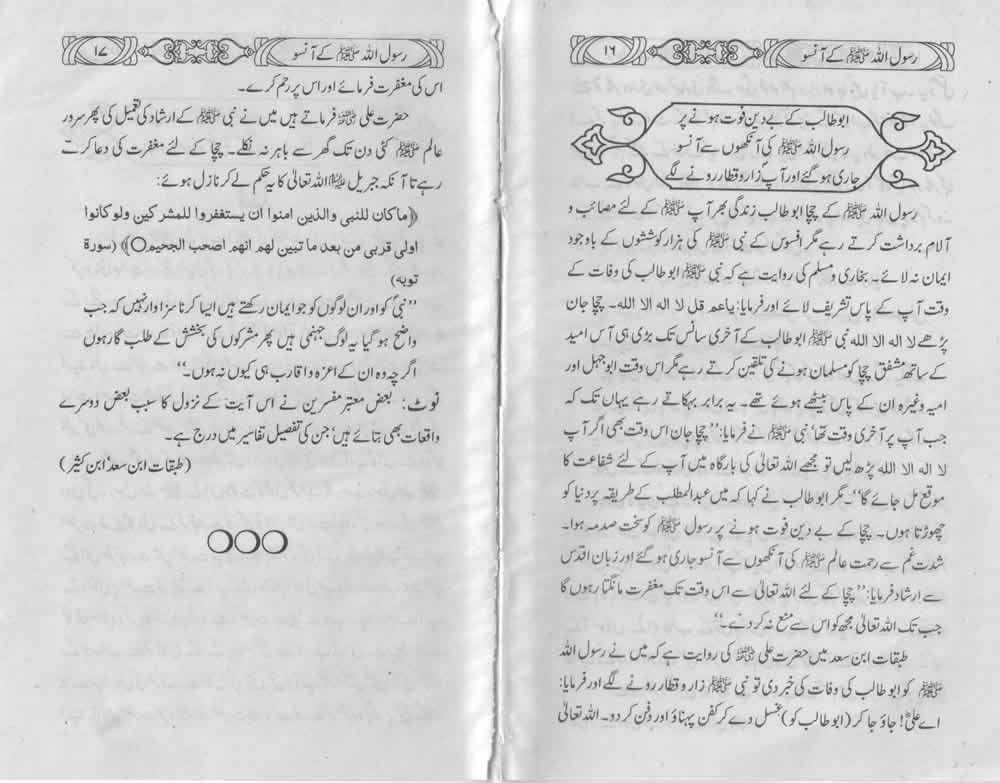 رسول اللہ ﷺ کے آنسو
۱۶
ابو طالب کے بے دین فوت ہونے پر
رسول اللہ ﷺ کی آنکھوں سے آنسو
جاری ہو گئے اور آپؐ زار و قطار رونے لگے
رسول اللہ ﷺ کے چچا ابو طالب زندگی بھر آپ ﷺ کے لئے مصائب و
آلام برداشت کرتے رہے مگر افسوس کے نبی ﷺ کی ہزار کوششوں کے باوجود
ایمان نہ لائے۔ بخاری و مسلم کی روایت ہے کہ نبی ﷺ ابو طالب کی وفات کے
وقت آپ کے پاس تشریف لائے اور فرمایا: یاعم قل لا الہ الا اللہ۔ چچا جان
پڑھے لا الہ الا اللہ نبی ﷺ ابو طالب کے آخری سانس تک بڑی ہی آس امید
کے ساتھ مشفق چچا کو مسلمان ہونے کی تلقین کرتے رہے مگر اس وقت ابو جہل اور
امیہ وغیرہ ان کے پاس بیٹھے ہوئے تھے۔ یہ برابر بہکاتے رہے یہاں تک کہ
جب آپ پر آخری وقت تھا' نبی ﷺ نے فرمایا: ''چچا جان اس وقت بھی اگر آپ
لا الہ الا اللہ پڑھ لیں تو مجھے اللہ تعالیٰ کی بارگاہ میں آپ کے لئے شفاعت کا
موقع مل جائے گا''۔ مگر ابو طالب نے کہا کہ میں عبدالمطلب کے طریقہ پر دنیا کو
چھوڑتا ہوں۔ چچا کے بے دین فوت ہونے پر رسول ﷺ کو سخت صدمہ ہوا۔
شدت غم سے رحمت عالم ﷺ کی آنکھوں سے آنسو جاری ہو گئے اور زبان اقدس
سے ارشاد فرمایا: ''چچا کے لئے اللہ تعالیٰ سے اس وقت تک مغفرت مانگتا رہوں گا
جب تک اللہ تعالیٰ مجھ کو اس سے منع نہ کر دے۔''
طبقات ابن سعد میں حضرت علی ؓ کی روایت ہے کہ میں نے رسول اللہ
ﷺ کو ابو طالب کی وفات کی خبر دی تو نبی ﷺ زار و قطار رونے لگے اور فرمایا:
اے علیؓ! جاؤ جا کر (ابو طالب کو) غسل دے کر کفن پہناؤ اور دفن کر دو۔ اللہ تعالیٰ
رسول اللہ ﷺ کے آنسو
۱۷
اس کی مغفرت فرمائے اور اس پر رحم کرے۔
حضرت علی ؓ فرماتے ہیں میں نے نبی ﷺ کے ارشاد کی تعمیل کی پھر سرور
عالم ﷺ کئی دن تک گھر سے باہر نہ نکلے۔ چچا کے لئے مغفرت کی دعا کرتے
رہے تا آنکہ جبریل علیہ السلام اللہ تعالیٰ کا یہ حکم لے کر نازل ہوئے:
﴿ماکان للنبی والذین امنوا ان یستغفروا للمشرکین ولو کانوا
اولی قربی من بعد ما تبین لھم انھم اصحب الجحیم○﴾ (سورۃ
توبہ)
''نبیؐ کو اور ان لوگوں کو جو ایمان رکھتے ہیں ایسا کرنا سزاوار نہیں کہ جب
واضح ہو گیا یہ لوگ جہنمی ہیں پھر مشرکوں کی بخشش کے طلب گار ہوں
اگرچہ وہ ان کے اعزہ و اقارب ہی کیوں نہ ہوں۔''
نوٹ: بعض معتبر مفسرین نے اس آیت کے نزول کا سبب بعض دوسرے
واقعات بھی بتائے ہیں' جن کی تفصیل تفاسیر میں درج ہے۔
(طبقات ابن سعد' ابن کثیر)
○○○